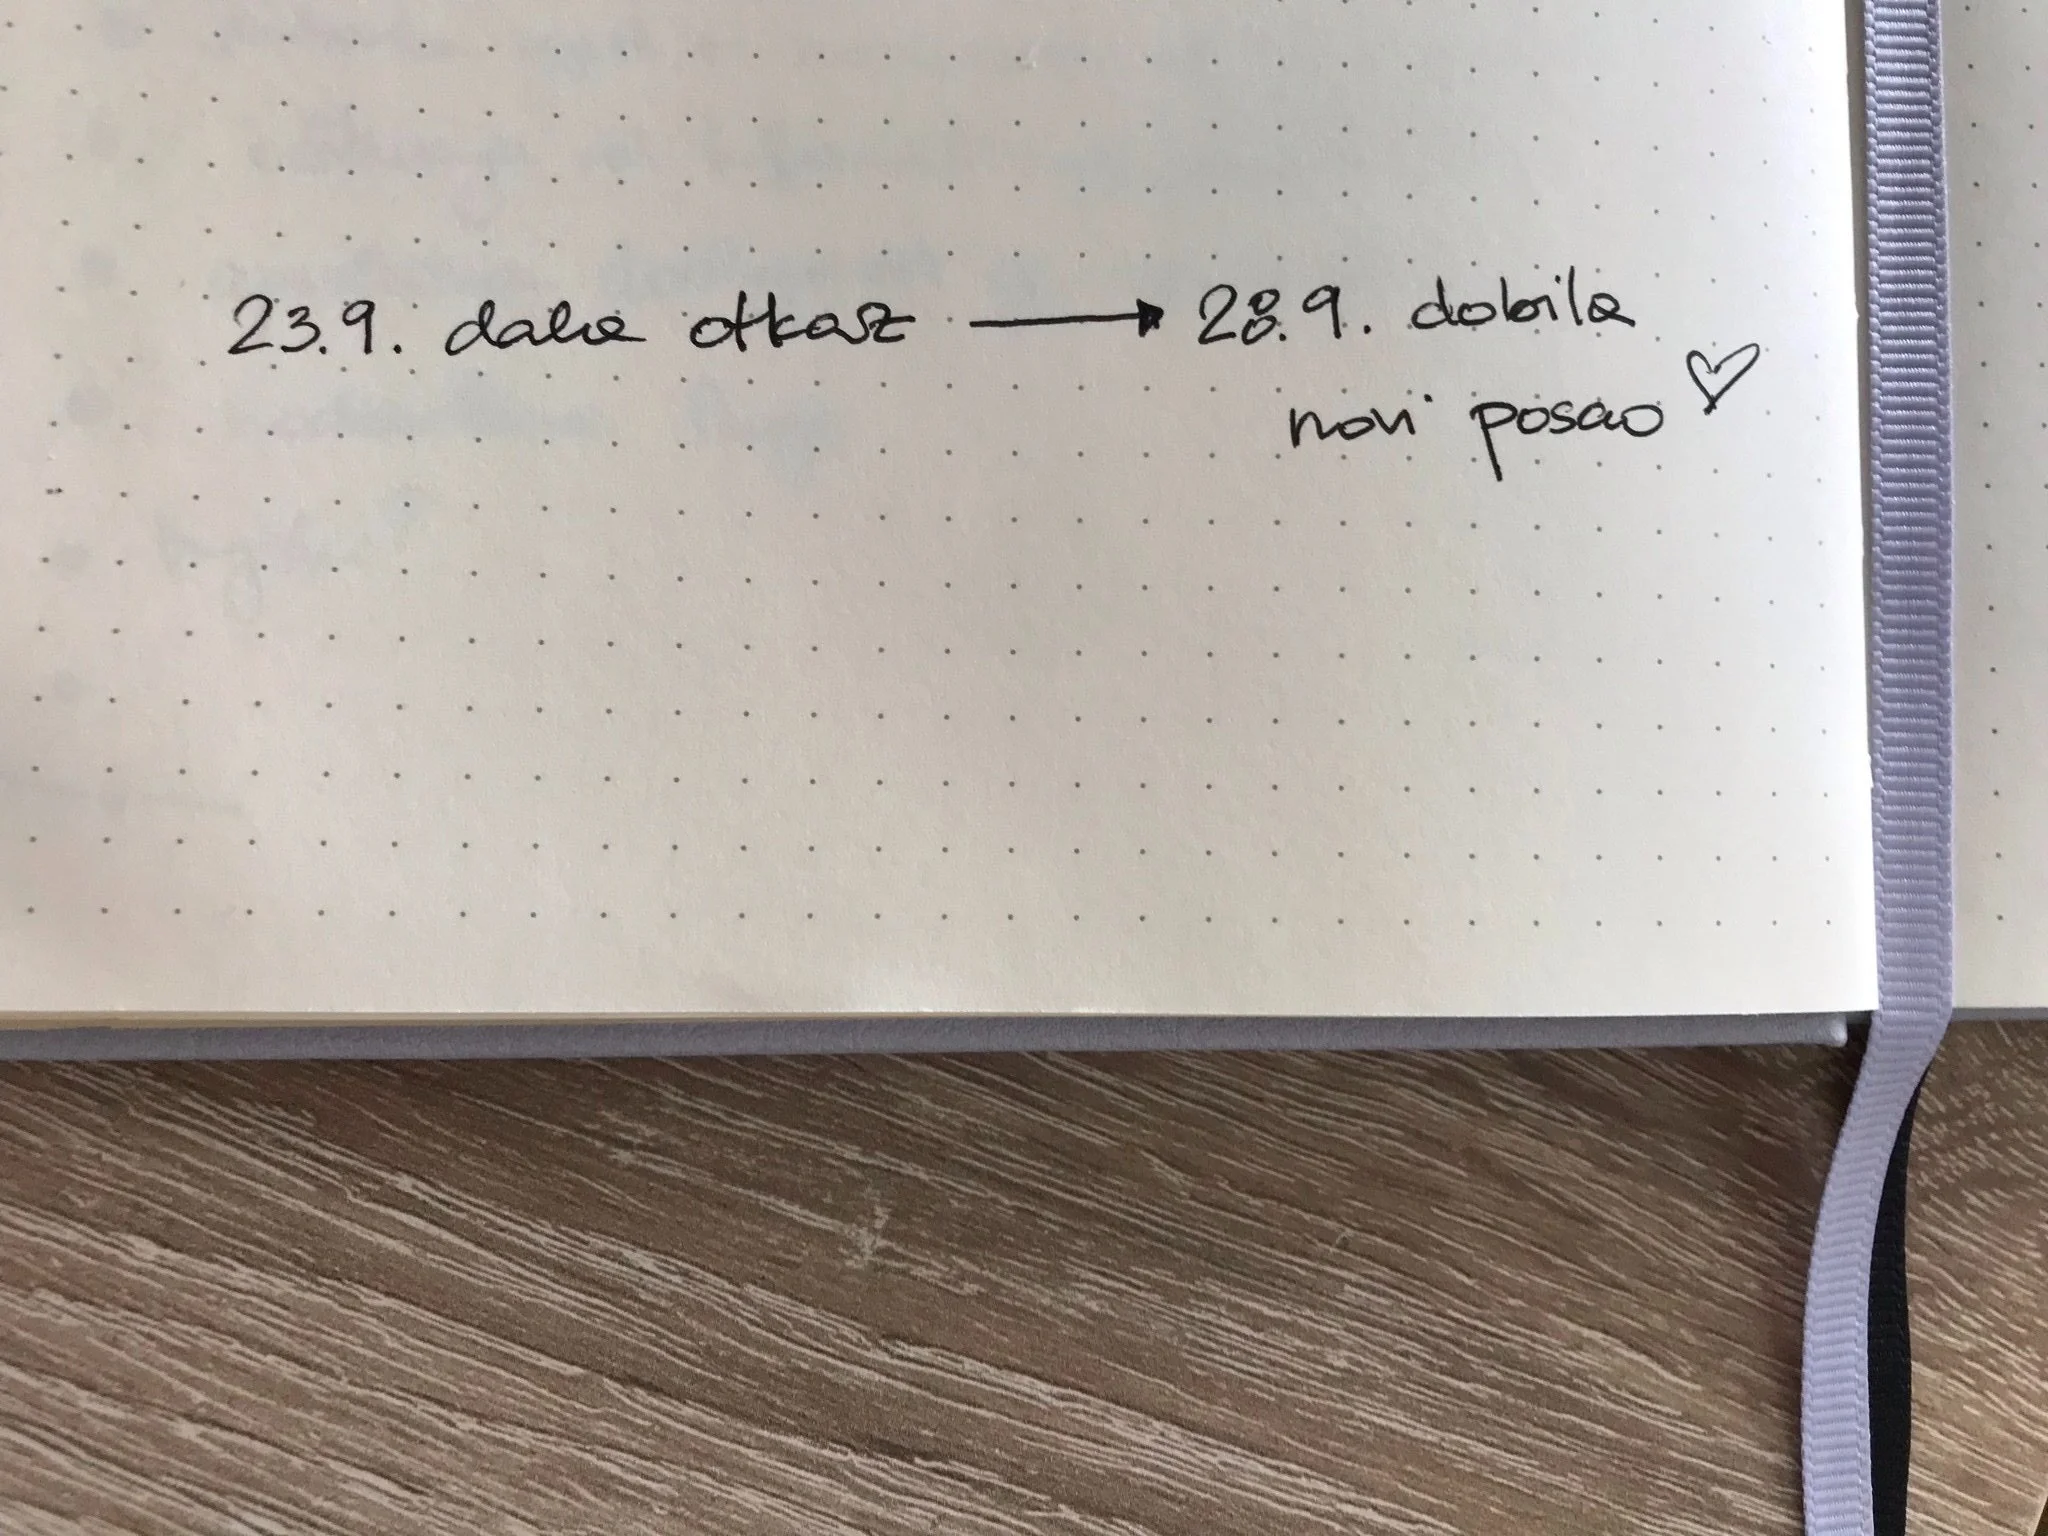 23.9. dala otkaz → 28.9. dobila
novi posao ♡